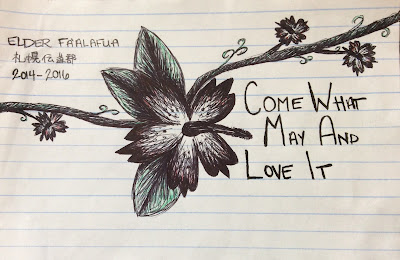 ELDER FA'ALAFUA
札幌伝道部
2014-2016
COME WHAT
MAY AND
LOVE IT